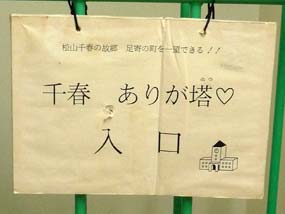 松山千春の故郷　足寄の町を一望できる！！
千春　ありが塔♡
とう
入口